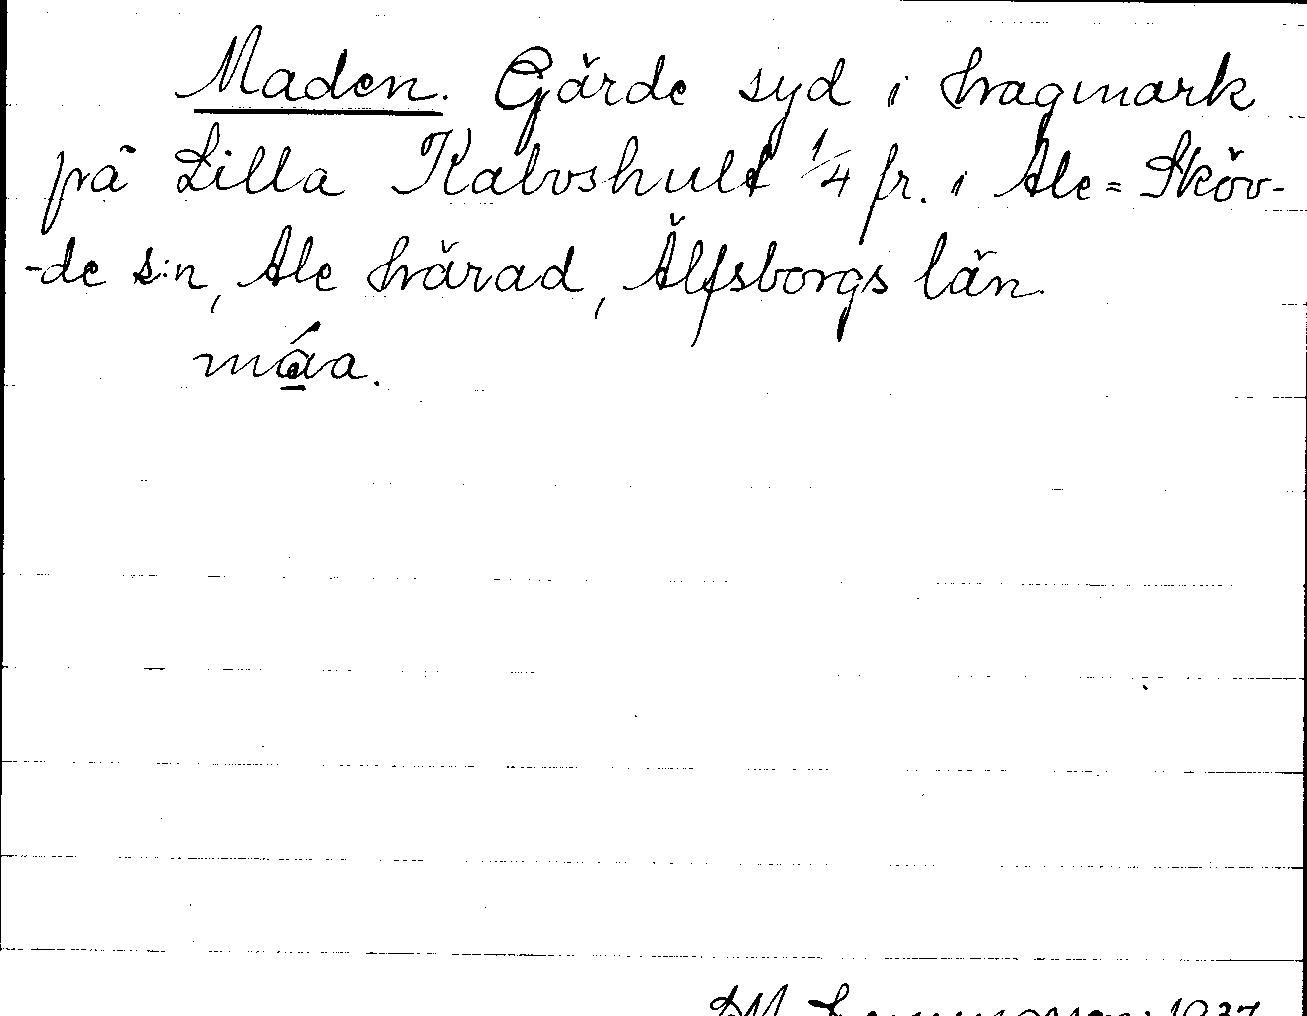 Maden. Gärde syd i hagmark
på Lilla Kalvshult 1/4 fr. i Ale=Sköv-
-de s:n, Ale härad, Älfsborgs län.
máa.
1937